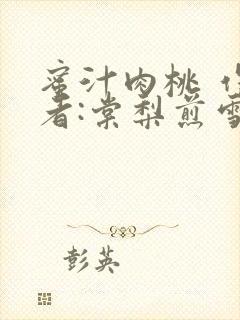 蜜汁肉桃
者:棠梨煎雪
彭英